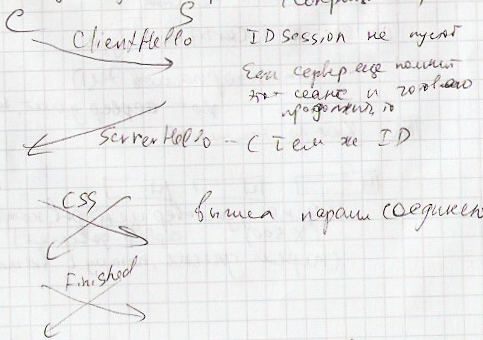 C S
ClientHello ID Session не пустой
Если сервер еще помнит
этот сеанс и готов его
продолжить, то
ServerHello - с тем же ID
CSS вычисл парам соединен
Finished